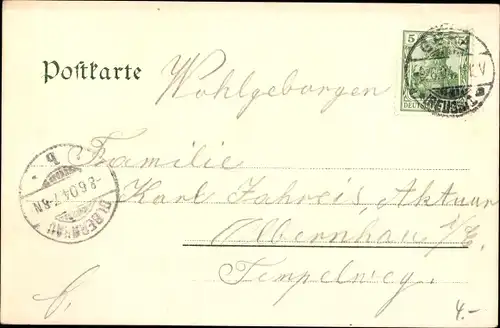 Postkarte
Wohlgeborgen
Familie
Karl Fahreis, Aktuar
Olbernhau i/E.
Tempelweg.
5
DEUTSCHES
OLBERNHAU
-8.6.04.7-8N
b
4.-